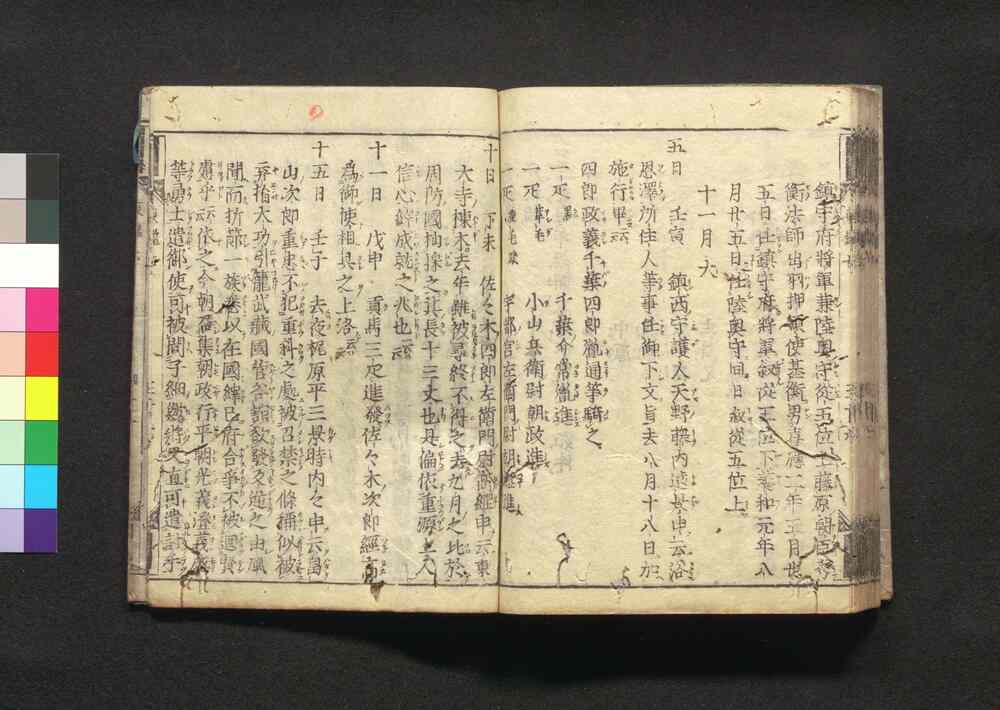 鎮守府將軍兼陸奥守從五位上藤原朝臣秀
衡法師出羽押領使基衡男嘉應二年五月廿
五日任鎮守府將軍敘從五位下養和元年八
月廿五日任陸奥守同日敘從五位上
十一月大
五日 壬寅 鎮西守護人天野藤内遠景申云浴
恩澤所住人等事任御下文旨去八月十八日加
施行畢云云
一疋 千葉介常胤進
四郎政義千葉四郎胤通等騎之
一疋 葦毛 小山兵衛尉朝政進
一疋 鹿毛駮 宇都宮左衛門尉朝綱進
十日 丁未 佐々木四郎左衛門尉高綱申云東
大寺棟木去年雖被尋終不得之去九月之比於
周防國抽採之其長十三丈也是偏依重源上人
信心鮮成就之兆也云云
十一日 戊申 貢馬三疋進發佐々木次郎經高
爲御使相具之上洛云云
十五日 壬子 去夜梶原平三景時内々申云畠
山次郎重忠不犯重科之處被召禁之條稱似被
弃捐大功引籠武藏國菅谷館欲發反逆之由風
聞而折節一族悉以在國緯已府合爭不被廻賢
慮乎云云依之今朝召集朝政行平朝光義澄義盛
等勇士遣御使可被問子細歟將又直可遣討手